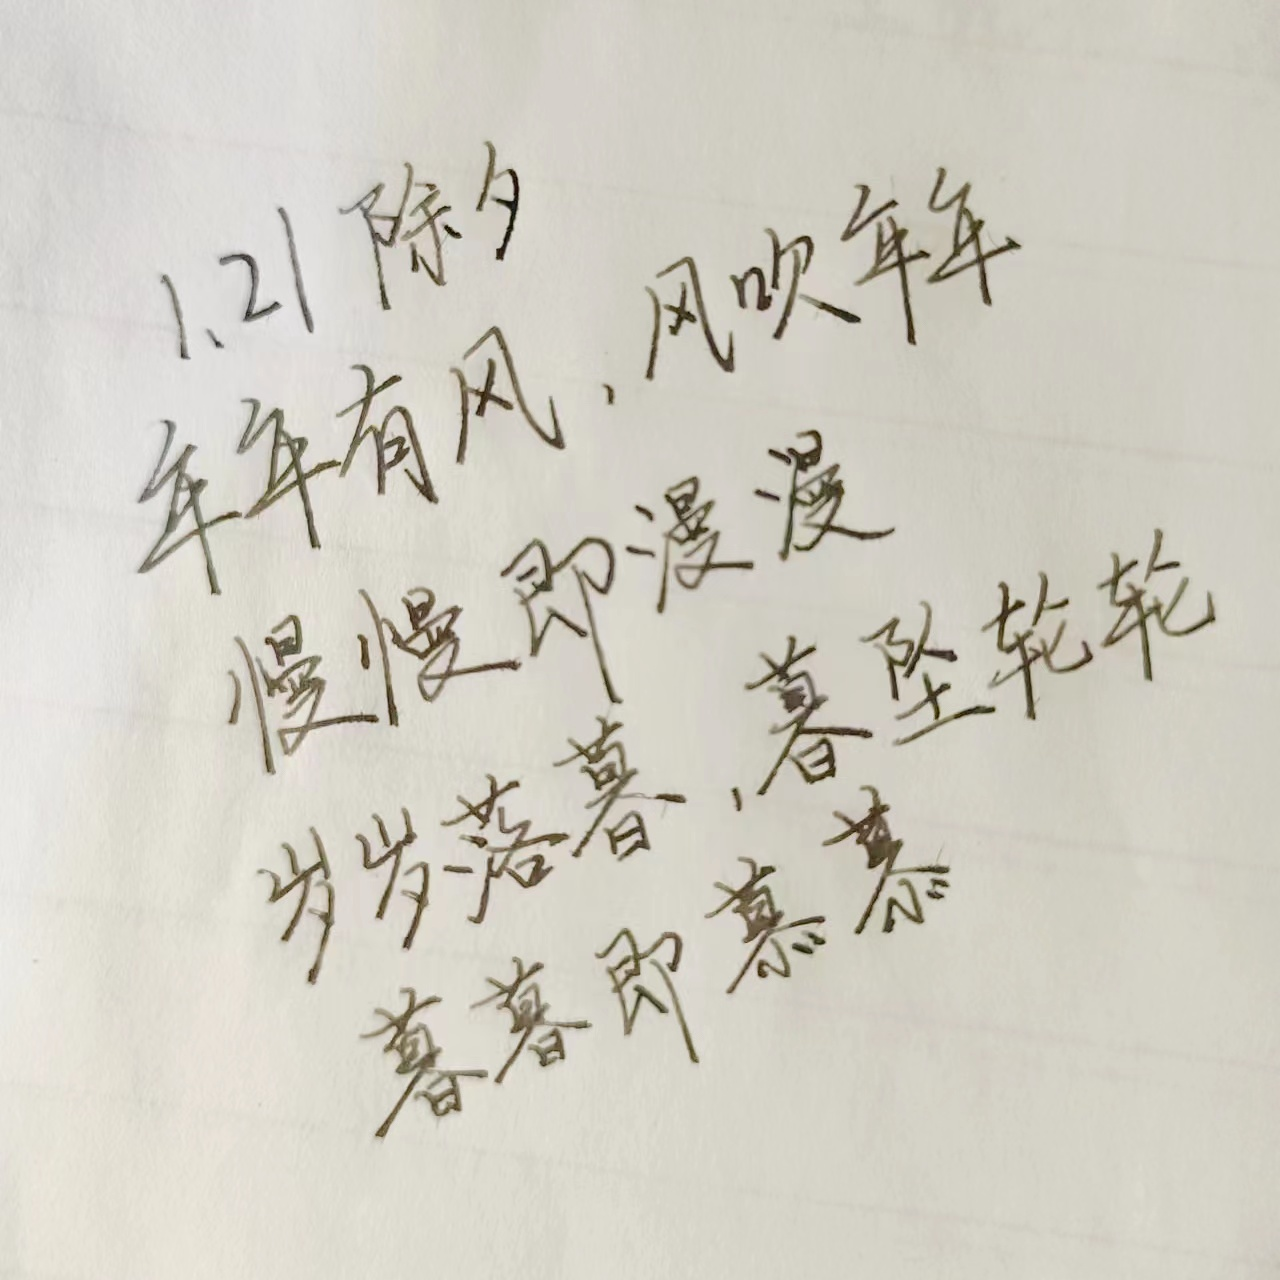 1.21 除夕
年年有风，风吹年年
慢慢即漫漫
岁岁落暮，暮坠轮轮
暮暮即慕慕